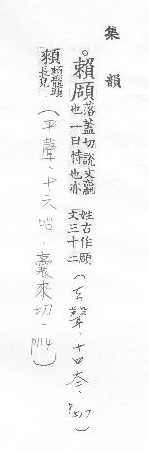 集韻
賴 落蓋切說文贏也一曰恃也亦姓古作 文三十二(去聲.十四泰.P517)
賴 頭長皃(平聲.十六咍.囊來切.P114)